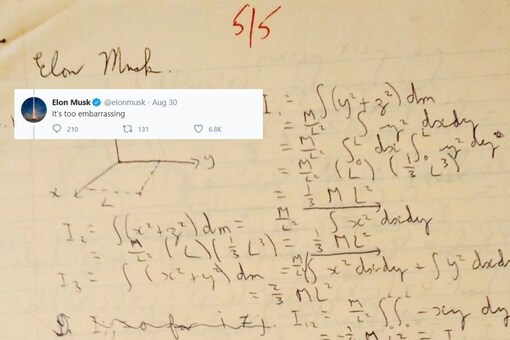 5/5
Elon Musk.
Elon Musk @elonmusk · Aug 30
It's too embarrassing
210 131 6.8K
y
x
L
I₁ = ∫(y²+z²) dm
= M/L² ∫ y² dxdy
= M/L² ∫₀ᴸ dx ∫₀ᴸ y² dy
= M/L² (L) (1/3 L³)
= 1/3 ML²
I₂ = ∫(x²+z²) dm = M/L² ∫ x² dxdy
= M/L² (L)(1/3 L³) = 1/3 ML²
I₃ = ∫(x²+y²) dm = M/L² ∫ x² dxdy + ∫ y² dxdy
= 2/3 ML²
I₁₂ = M/L² ∫₀ᴸ∫₀ᴸ -xy dy